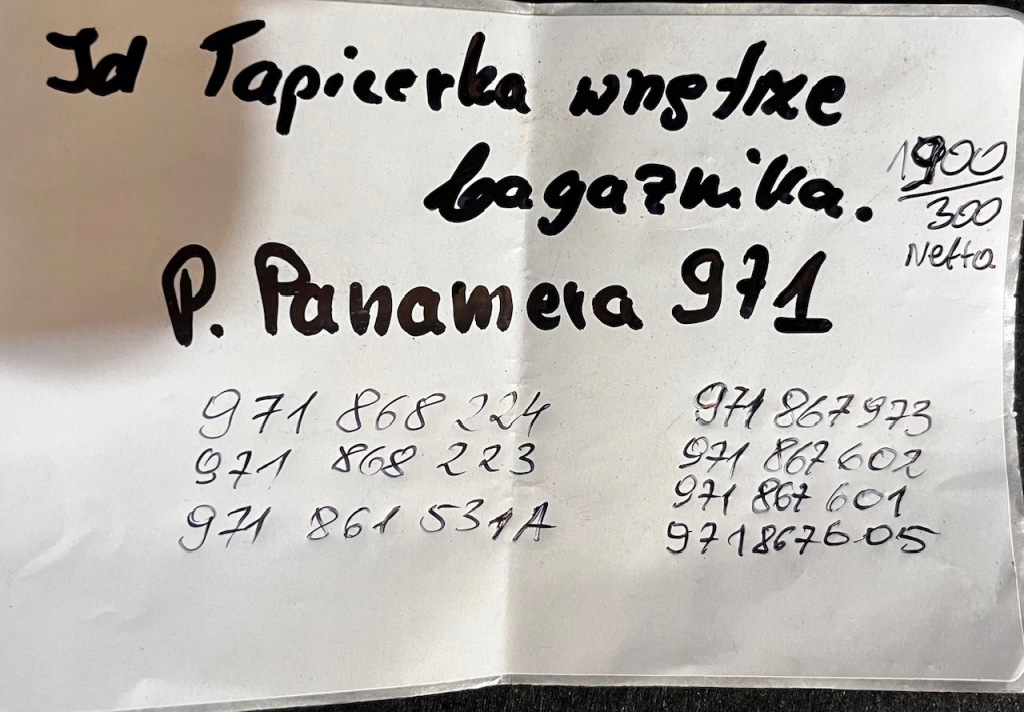 Jd Tapicerka wnętrze
bagażnika.
1900
300
Netto
P. Panamera 971
971 868 224
971 868 223
971 861 531A
971 867 973
971 867 602
971 867 601
971 867 605